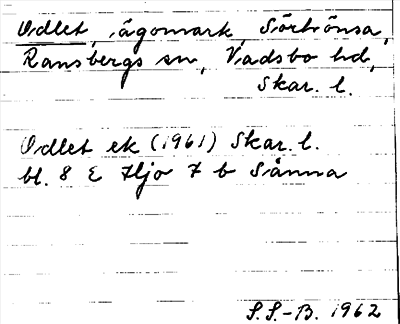 Odlet, ägomark, Sörhönsa,
Ransbergs sn, Vadsbo hd,
Skar. l.
Odlet ek (1961) Skar. l.
bl. 8 E Hjo 7 b Sånna
S.S.-B. 1962